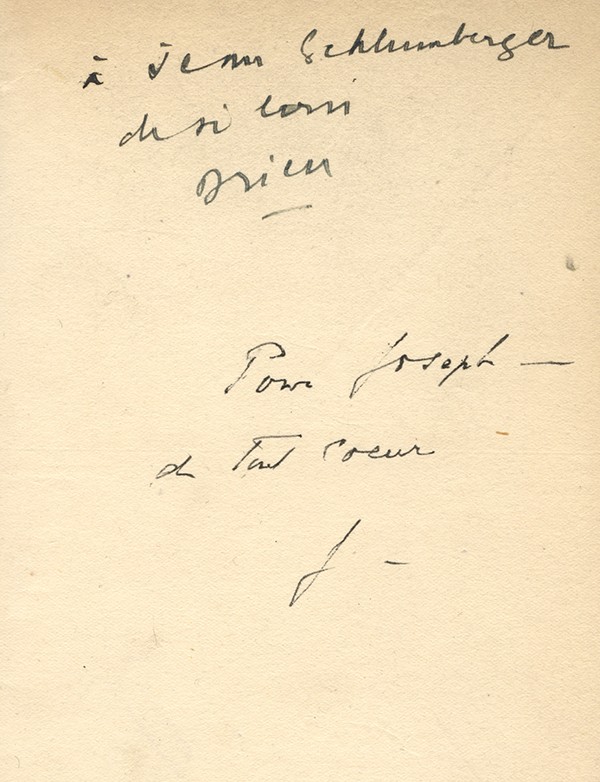 à Jean Schlumberger
de si loin
Drieu
Pour Joseph —
de tout coeur
J —